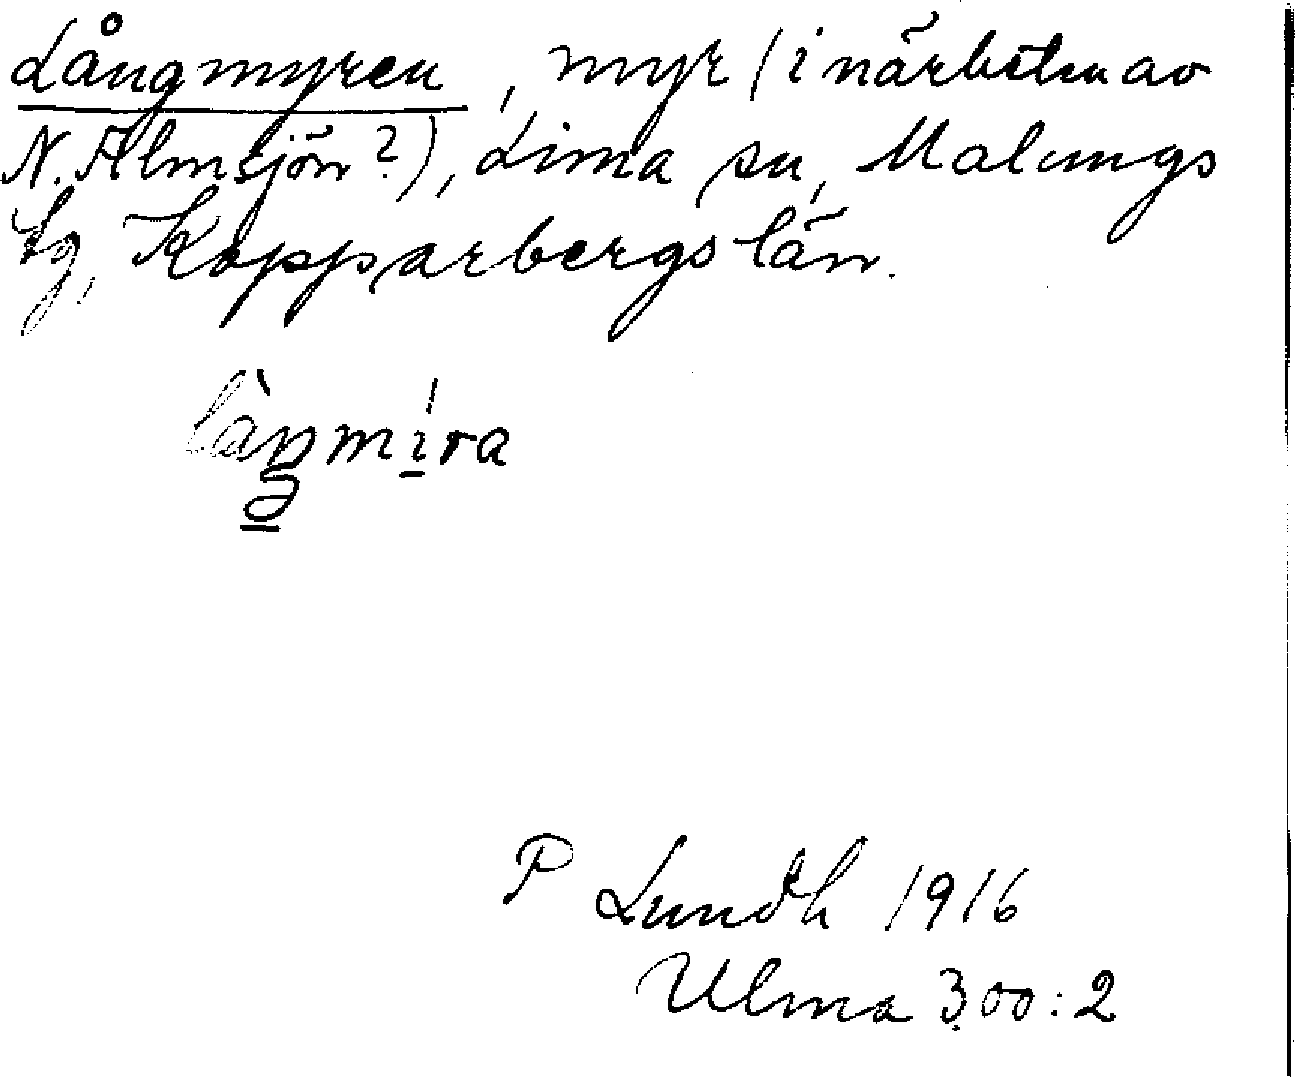 Långmyren, myr (i närheten av
N. Älmsjön?), Lima sn, Malungs
tg, Kopparbergs län.
làŋmíra
P Lundh 1916
Ulma 300:2